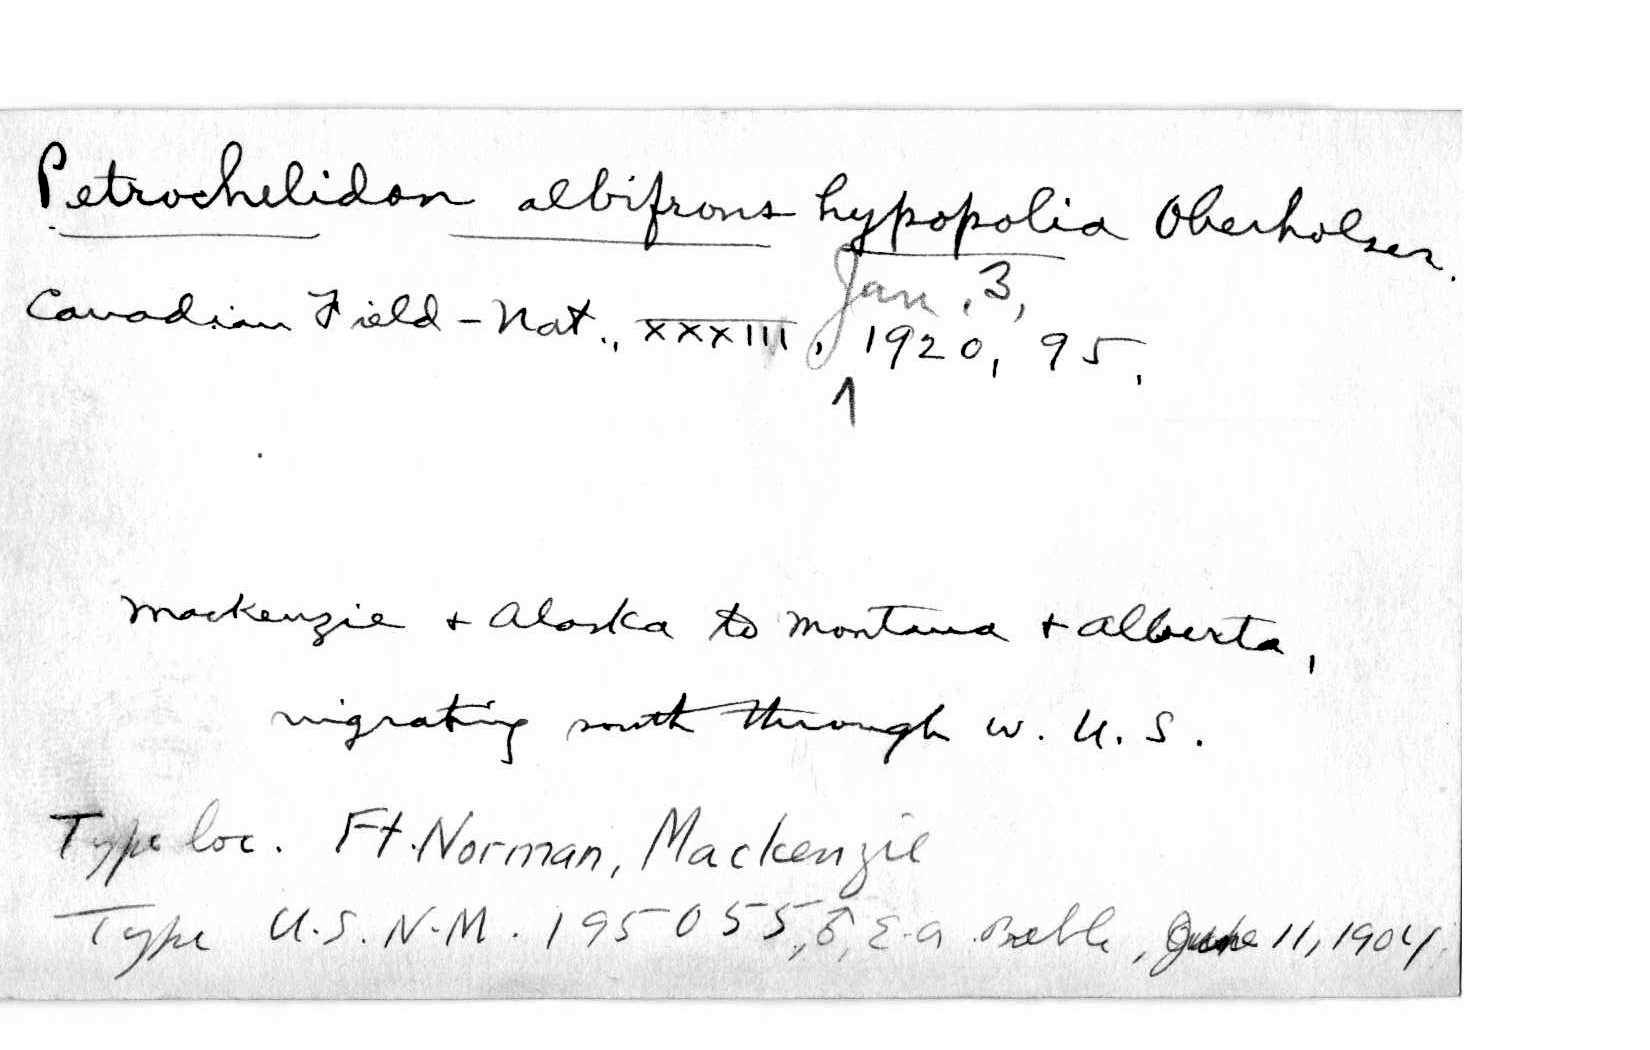 Petrochelidon albifrons hypopolia Oberholser.
Canadian Field-Nat., XXXIII, Jan. 3, 1920, 95.
Mackenzie + Alaska to Montana + Alberta,
migrating south through w. U.S.
Type loc. Ft. Norman, Mackenzie
Type U.S.N.M. 195055, ♂, E.A. Preble, June 11, 1904.